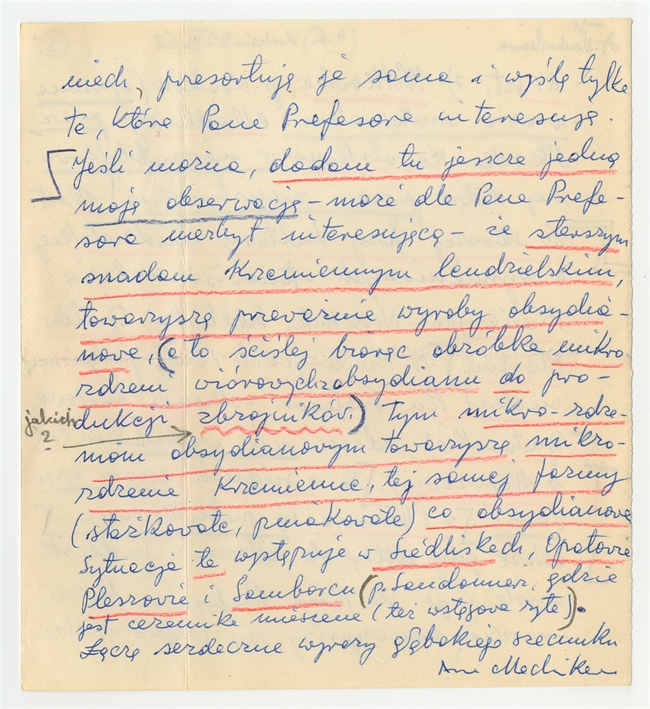 niech, presortuję je sama i wyślę tylko
te które Pana Profesora interesują.
Jeśli można, dodam tu jeszcze jedną
moją obserwację – może dla Pana Profe-
sora niezbyt interesującą – że starszym
śladom krzemiennym lendzielskim,
towarzyszą przeważnie wyroby obsydia-
nowe, (a to ściślej biorąc obróbka mikro-
rdzeni wiórowych z obsydianu do pro-
dukcji zbrojników.) Tym mikro-rdze-
jakich
?
niom obsydianowym towarzyszą mikro-
rdzenie krzemienne, tej samej formy
(stożkowate, pniakowate) co obsydianowe
Sytuacja ta występuje w Siedliskach, Opatowie
Pleszowie i Samborcu (p. Sandomierz, gdzie
jest ceramika mieszana (też wstęgowa ryta).
Łączę serdeczne wyrazy głębokiego szacunku